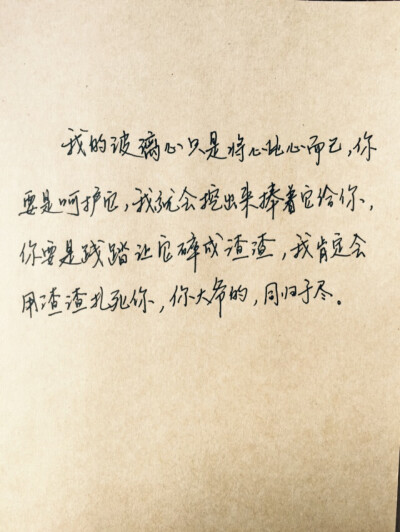 我的玻璃心只是将心比心而已，你
要是呵护它，我就会挖出来捧着它给你，
你要是践踏让它碎成渣渣，我肯定会
用渣渣扎死你，你大爷的，同归于尽。